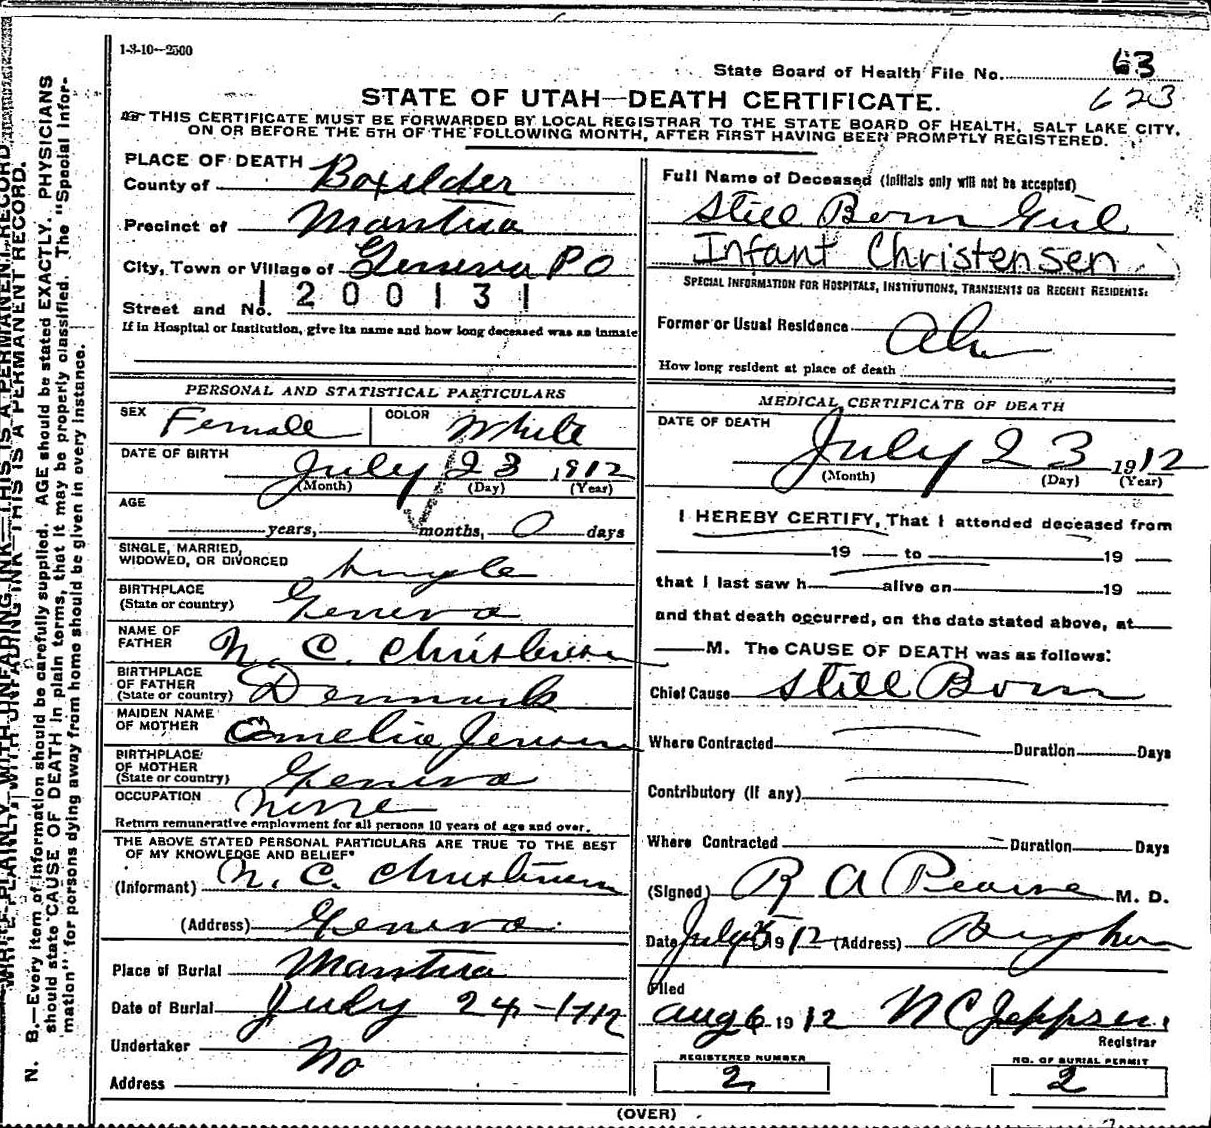 1-3-10--2500
State Board of Health File No. 63
623
STATE OF UTAH—DEATH CERTIFICATE.
THIS CERTIFICATE MUST BE FORWARDED BY LOCAL REGISTRAR TO THE STATE BOARD OF HEALTH, SALT LAKE CITY,
ON OR BEFORE THE 5TH OF THE FOLLOWING MONTH, AFTER FIRST HAVING BEEN PROMPTLY REGISTERED.
PLACE OF DEATH
County of Boxelder
Precinct of Mantua
City, Town or Village of Geneva P O
1200131
Street and No.
If in Hospital or Institution, give its name and how long deceased was an inmate
PERSONAL AND STATISTICAL PARTICULARS
SEX Female COLOR White
DATE OF BIRTH July 23 1912
(Month) (Day) (Year)
AGE
years, months, 0 days
SINGLE, MARRIED,
WIDOWED, OR DIVORCED Single
BIRTHPLACE
(State or country) Geneva
NAME OF
FATHER N. C. Christensen
BIRTHPLACE
OF FATHER
(State or country) Denmark
MAIDEN NAME
OF MOTHER Camelia Jensen
BIRTHPLACE
OF MOTHER
(State or country) Geneva
OCCUPATION None
Return remunerative employment for all persons 10 years of age and over.
THE ABOVE STATED PERSONAL PARTICULARS ARE TRUE TO THE BEST
OF MY KNOWLEDGE AND BELIEF
(Informant) N. C. Christensen
(Address) Geneva
Place of Burial Mantua
Date of Burial July 24 - 1912
Undertaker No
Address
Full Name of Deceased (Initials only will not be accepted)
Still Born Girl
Infant Christensen
SPECIAL INFORMATION FOR HOSPITALS, INSTITUTIONS, TRANSIENTS OR RECENT RESIDENTS:
Former or Usual Residence
How long resident at place of death
MEDICAL CERTIFICATE OF DEATH
DATE OF DEATH July 23 1912
(Month) (Day) (Year)
I HEREBY CERTIFY, That I attended deceased from
19 to 19
that I last saw h alive on 19
and that death occurred, on the date stated above, at
M. The CAUSE OF DEATH was as follows:
Chief Cause Still Born
Where Contracted Duration Days
Contributory (If any)
Where Contracted Duration Days
(Signed) R A Pearse M. D.
Date July 1912 (Address) Brigham
Filed
Aug 6 1912 N C Jeppsen
Registrar
REGISTERED NUMBER
2
NO. OF BURIAL PERMIT
2
(OVER)
WRITE PLAINLY WITH UNFADING INK—THIS IS A PERMANENT RECORD.
N. B.—Every item of information should be carefully supplied. AGE should be stated EXACTLY. PHYSICIANS
should state CAUSE OF DEATH in plain terms, that it may be properly classified. The "Special Infor-
mation" for persons dying away from home should be given in every instance.